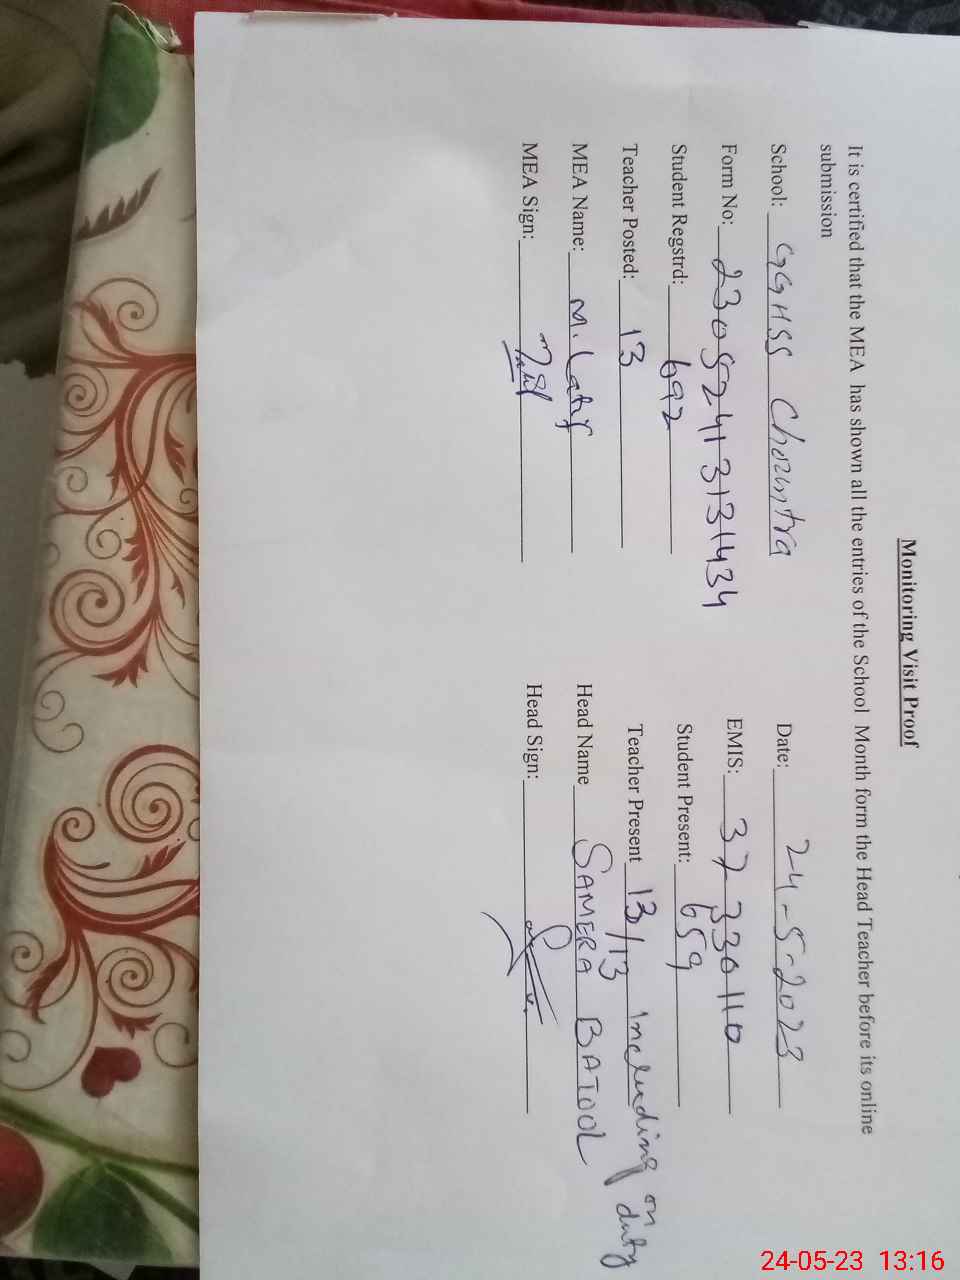 Monitoring Visit Proof
It is certified that the MEA has shown all the entries of the School Month form the Head Teacher before its online
submission
School: GGHSS Chountra Date: 24-5-2023
Form No: 23052413131434 EMIS: 37330110
Student Regstrd: 692 Student Present: 659
Teacher Posted: 13 Teacher Present 13/13 Including on duty
MEA Name: M. Latif Head Name SAMERA BATOOL
MEA Sign: Head Sign:
24-05-23 13:16